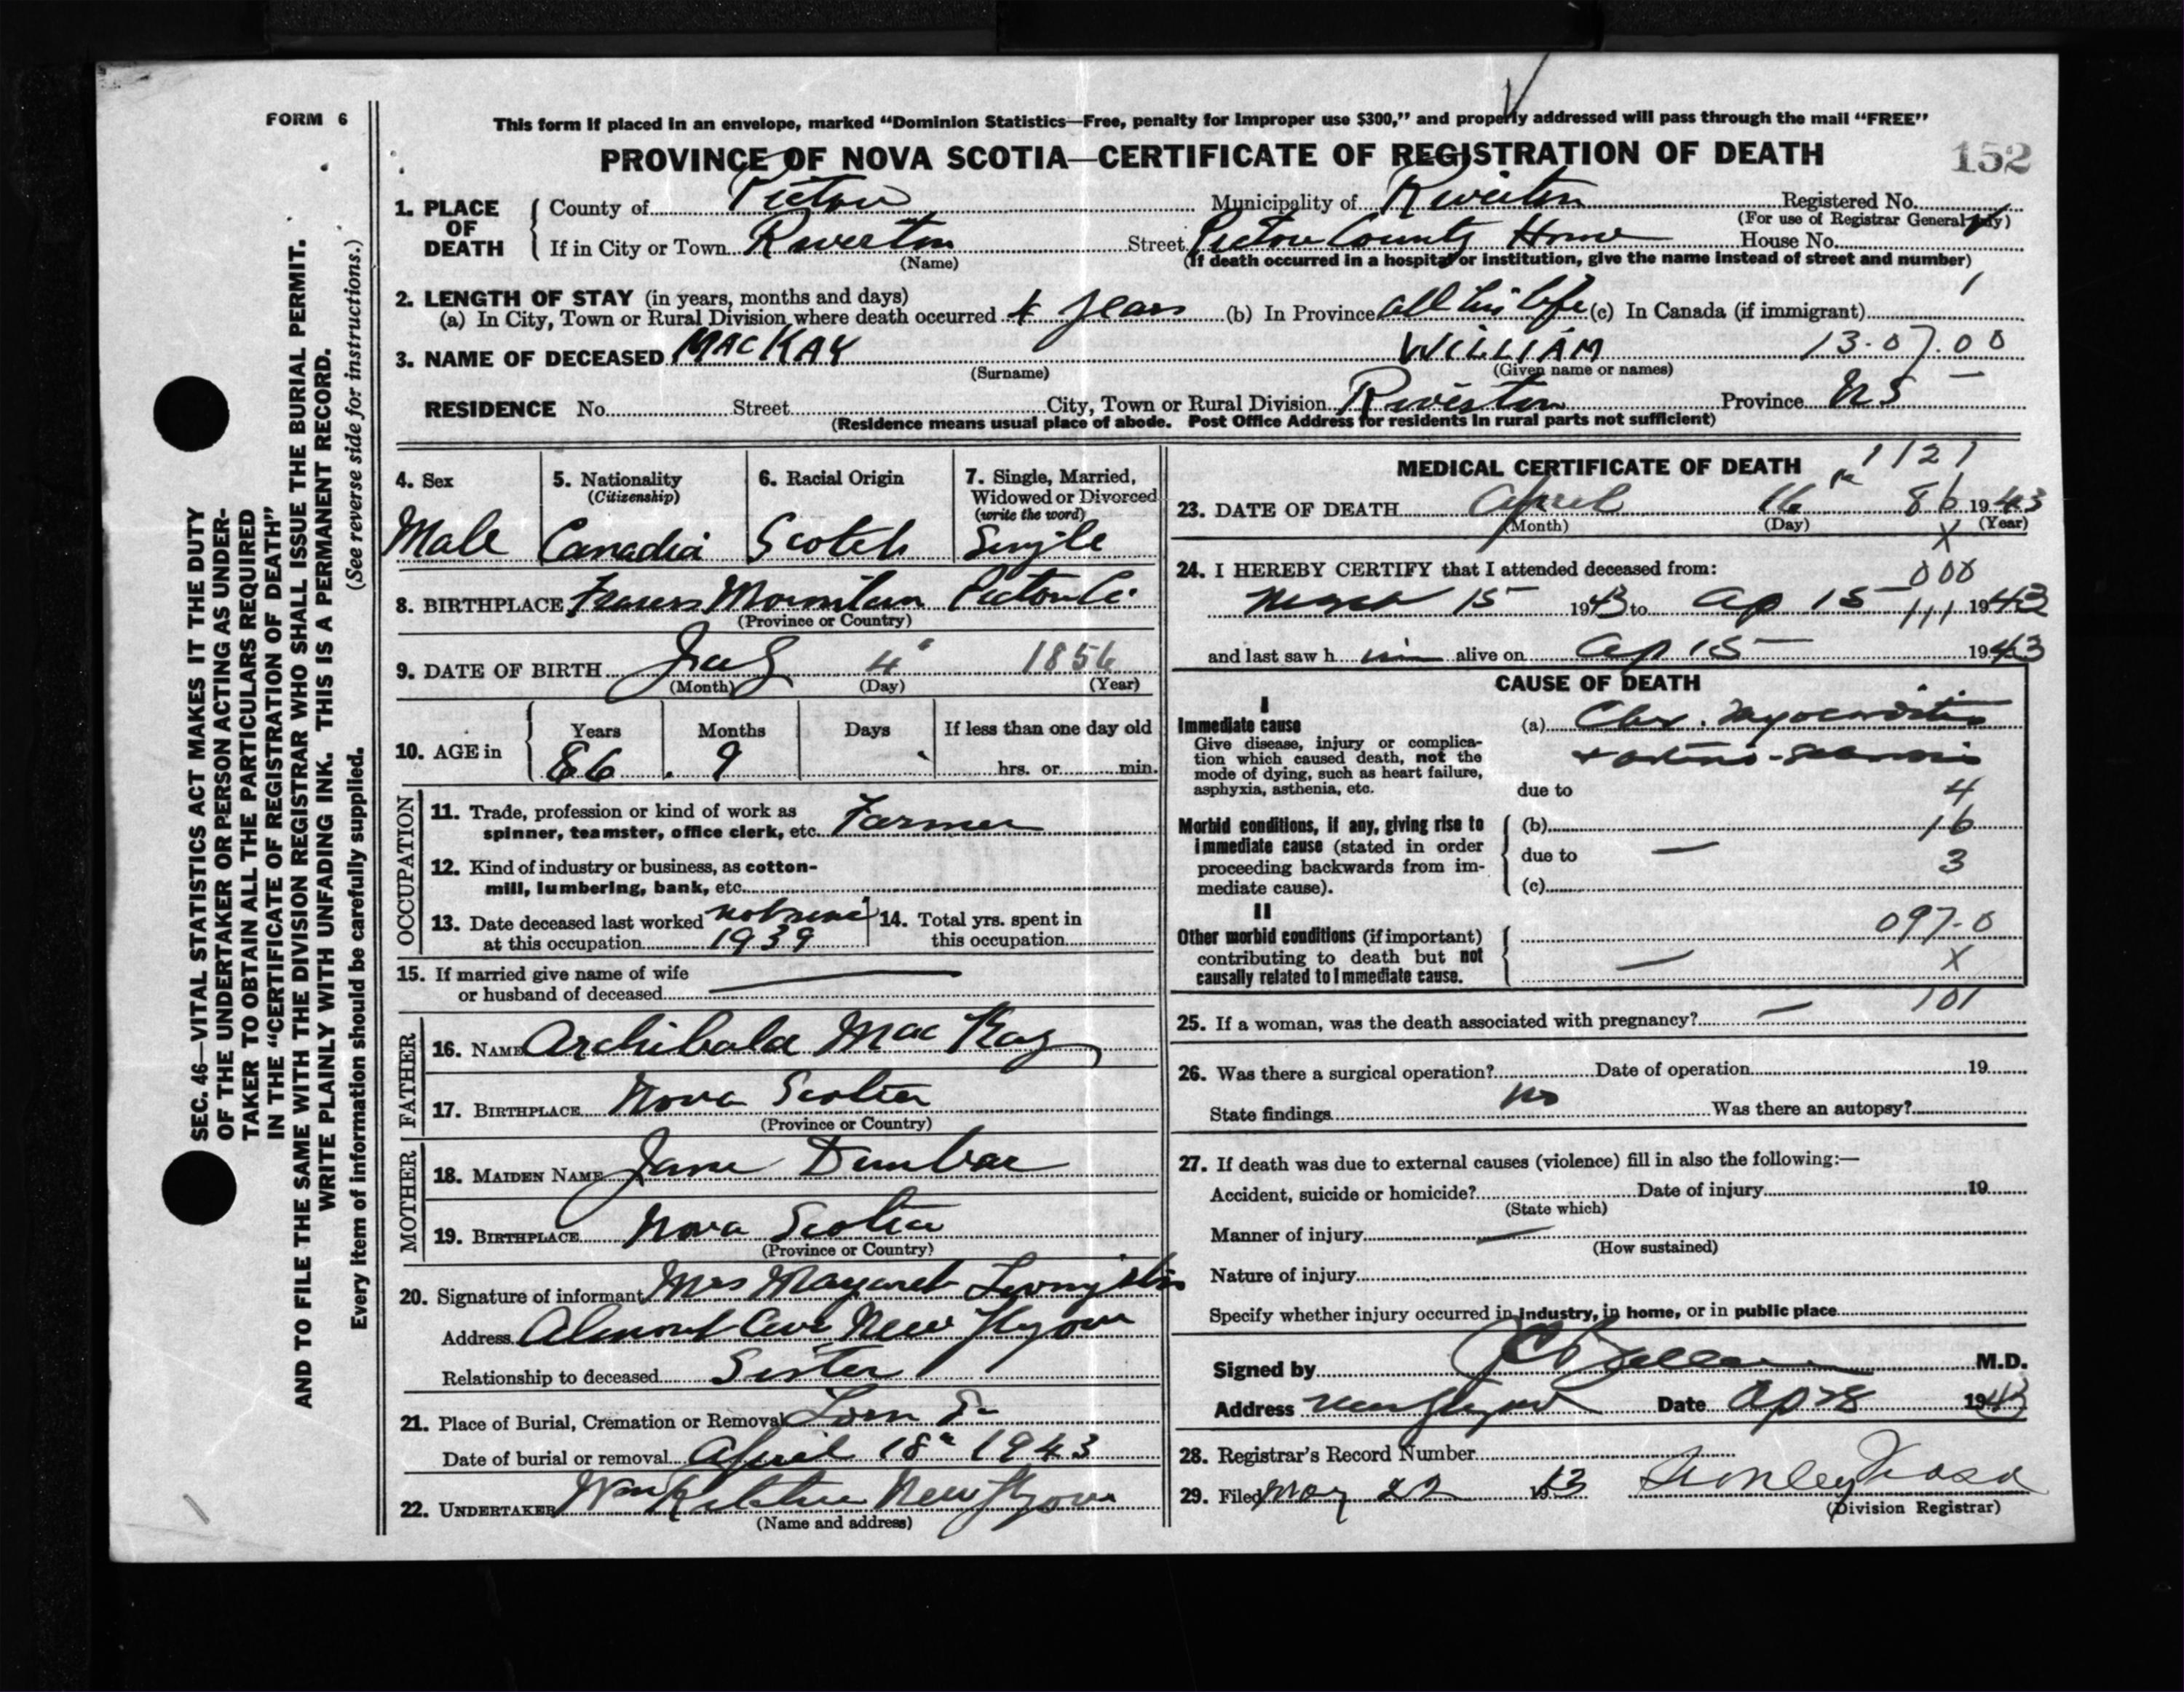 FORM 6
This form if placed in an envelope, marked "Dominion Statistics—Free, penalty for improper use $300," and properly addressed will pass through the mail "FREE"
PROVINCE OF NOVA SCOTIA—CERTIFICATE OF REGISTRATION OF DEATH
152
1. PLACE OF DEATH
County of Pictou Municipality of Riverton Registered No.
(For use of Registrar General only)
If in City or Town Riverton Street Pictou County Home House No.
(Name) (If death occurred in a hospital or institution, give the name instead of street and number)
2. LENGTH OF STAY (in years, months and days)
(a) In City, Town or Rural Division where death occurred 4 years (b) In Province all his life (c) In Canada (if immigrant) 1
3. NAME OF DECEASED MACKAY WILLIAM 13.07.00
(Surname) (Given name or names)
RESIDENCE No. Street City, Town or Rural Division Riverton Province NS
(Residence means usual place of abode. Post Office Address for residents in rural parts not sufficient)
4. Sex Male
5. Nationality (Citizenship) Canadia
6. Racial Origin Scotch
7. Single, Married, Widowed or Divorced (write the word) Single
8. BIRTHPLACE Frasers Mountain Pictou Co.
(Province or Country)
9. DATE OF BIRTH July 4" 1856
(Month) (Day) (Year)
10. AGE in Years 86 Months 9 Days If less than one day old hrs. or min.
OCCUPATION
11. Trade, profession or kind of work as spinner, teamster, office clerk, etc. Farmer
12. Kind of industry or business, as cotton-mill, lumbering, bank, etc.
13. Date deceased last worked at this occupation not since 1939
14. Total yrs. spent in this occupation
15. If married give name of wife or husband of deceased —
FATHER
16. NAME Archibald MacKay
17. BIRTHPLACE Nova Scotia
(Province or Country)
MOTHER
18. MAIDEN NAME Jane Dunbar
19. BIRTHPLACE Nova Scotia
(Province or Country)
20. Signature of informant Mrs Margaret
Address Ave New
Relationship to deceased Sister
21. Place of Burial, Cremation or Removal Lorn
Date of burial or removal April 18th 1943
22. UNDERTAKER New
(Name and address)
MEDICAL CERTIFICATE OF DEATH
1121
23. DATE OF DEATH April 16th 86 1943
(Month) (Day) (Year)
X
24. I HEREBY CERTIFY that I attended deceased from:
000
15 1943 to Ap 15 111 1943
and last saw h im alive on Ap 15 1943
CAUSE OF DEATH
I
Immediate cause
Give disease, injury or complication which caused death, not the mode of dying, such as heart failure, asphyxia, asthenia, etc.
(a) Chr. myocarditis
+
due to 4
Morbid conditions, if any, giving rise to immediate cause (stated in order proceeding backwards from immediate cause).
(b) 16
due to — 3
(c)
II
Other morbid conditions (if important) contributing to death but not causally related to immediate cause.
097-0
— X
25. If a woman, was the death associated with pregnancy? — 101
26. Was there a surgical operation? Date of operation 19
State findings no Was there an autopsy?
27. If death was due to external causes (violence) fill in also the following:—
Accident, suicide or homicide? Date of injury 19
(State which)
Manner of injury —
(How sustained)
Nature of injury
Specify whether injury occurred in industry, in home, or in public place
Signed by M.D.
Address Date Ap 28 1943
28. Registrar's Record Number
29. Filed May 22 1943
(Division Registrar)
SEC. 46—VITAL STATISTICS ACT MAKES IT THE DUTY
OF THE UNDERTAKER OR PERSON ACTING AS UNDER-
TAKER TO OBTAIN ALL THE PARTICULARS REQUIRED
IN THE "CERTIFICATE OF REGISTRATION OF DEATH"
AND TO FILE THE SAME WITH THE DIVISION REGISTRAR WHO SHALL ISSUE THE BURIAL PERMIT.
WRITE PLAINLY WITH UNFADING INK. THIS IS A PERMANENT RECORD.
Every item of information should be carefully supplied. (See reverse side for instructions.)